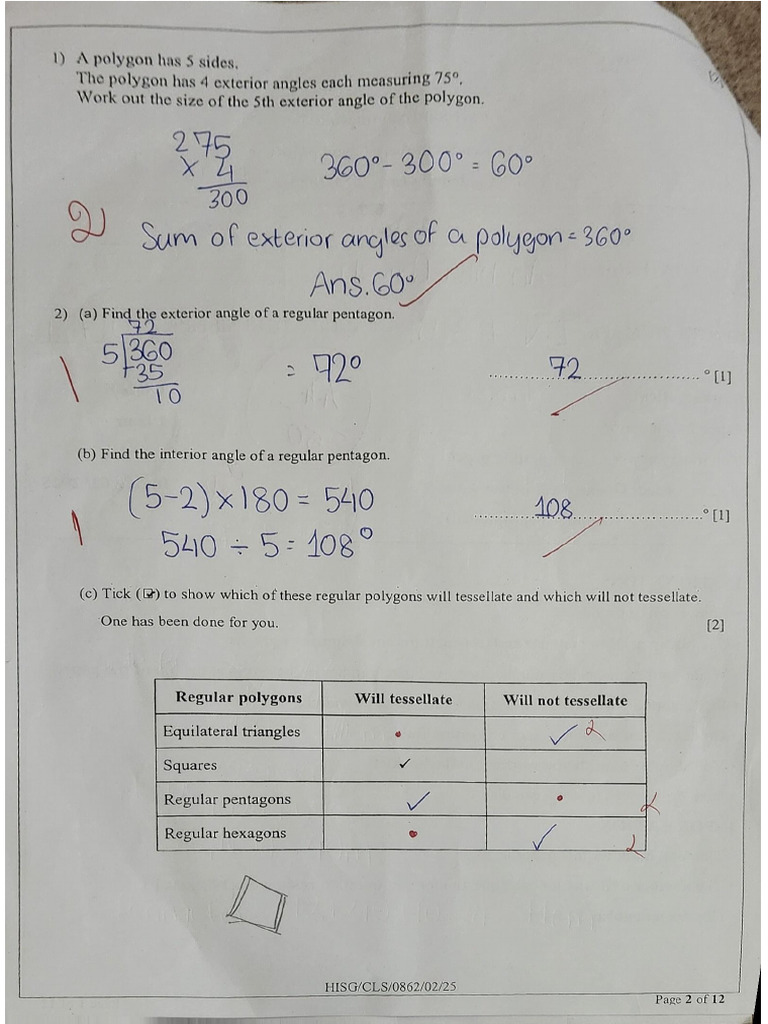 1) A polygon has 5 sides.
The polygon has 4 exterior angles each measuring 75°.
Work out the size of the 5th exterior angle of the polygon.
275
× 4
300
360° - 300° = 60°
2
Sum of exterior angles of a polygon = 360°
Ans. 60°
2) (a) Find the exterior angle of a regular pentagon.
72
5 360
-35
10
= 72°
72 ° [1]
1
(b) Find the interior angle of a regular pentagon.
(5-2) × 180 = 540
540 ÷ 5 = 108°
108 ° [1]
1
(c) Tick (☑) to show which of these regular polygons will tessellate and which will not tessellate.
One has been done for you. [2]
Regular polygons Will tessellate Will not tessellate
Equilateral triangles • ✓
Squares ✓
Regular pentagons ✓ •
Regular hexagons • ✓
HISG/CLS/0862/02/25
Page 2 of 12